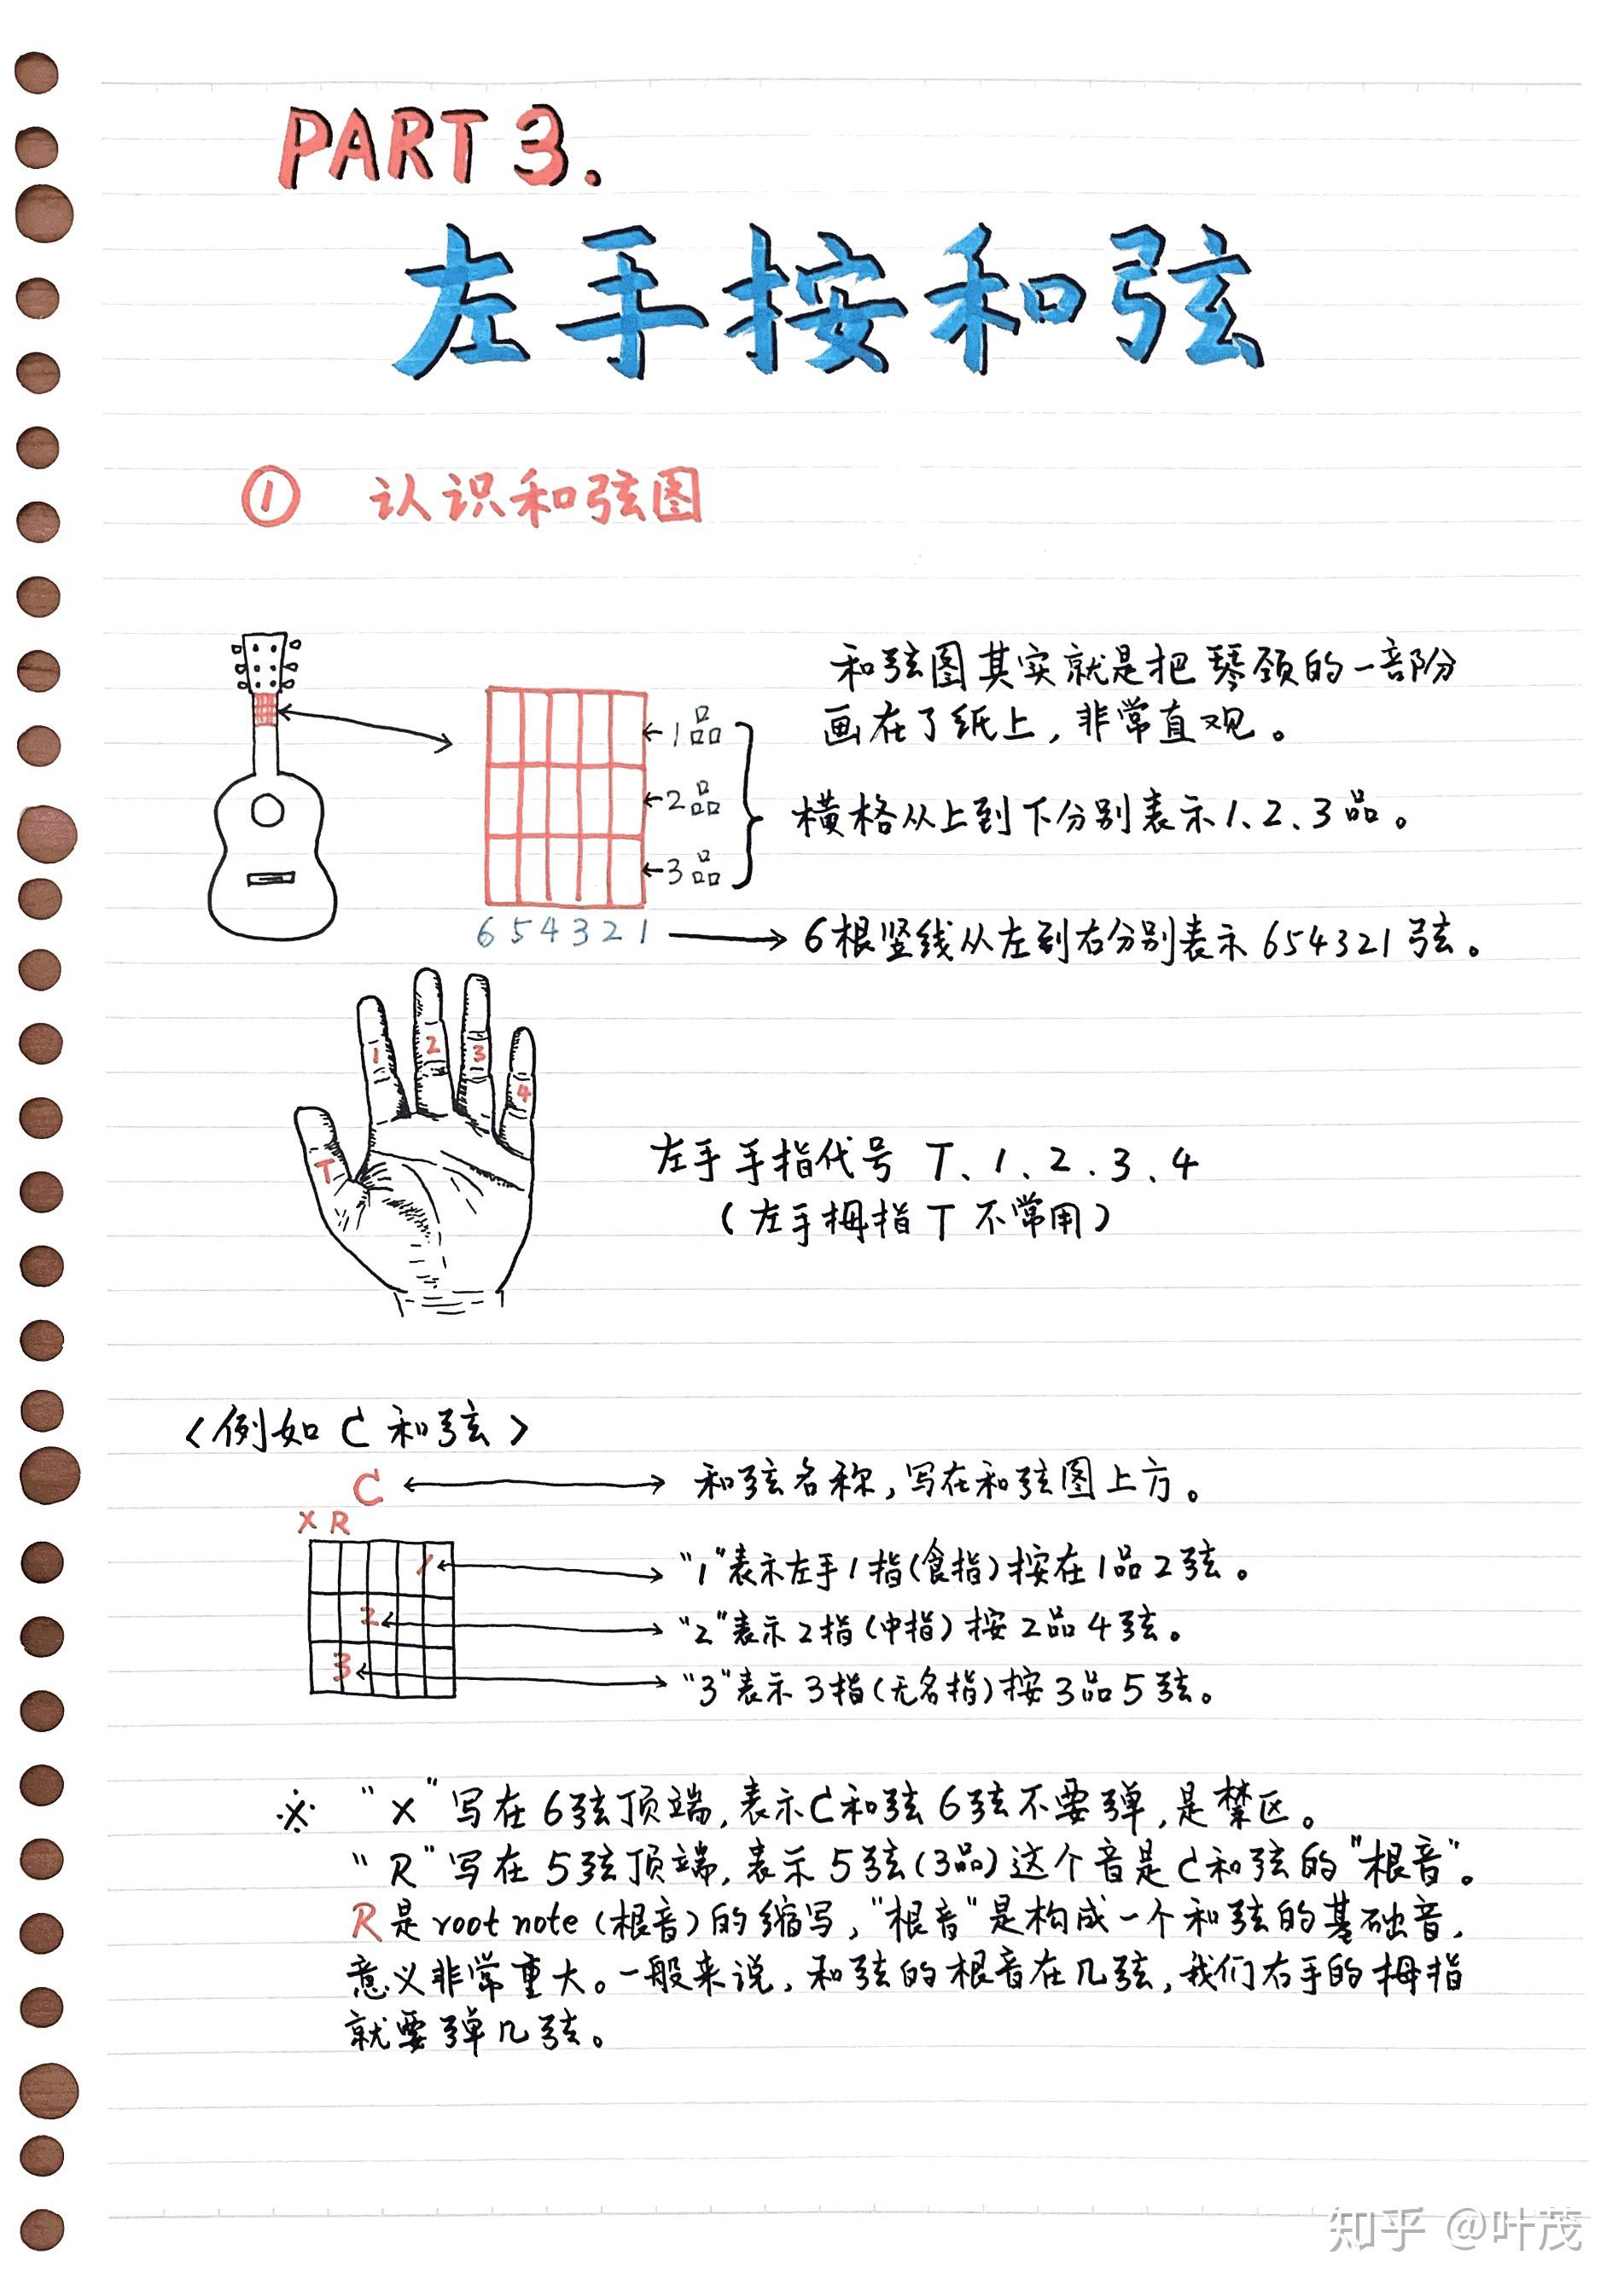 PART 3.
左手按和弦
① 认识和弦图
和弦图其实就是把琴颈的一部份
画在了纸上，非常直观。
←1品
←2品
←3品
横格从上到下分别表示1、2、3品。
6 5 4 3 2 1
6根竖线从左到右分别表示654321弦。
T 1 2 3 4
左手手指代号 T、1、2、3、4
（左手拇指T不常用）
〈例如C和弦〉
C
和弦名称，写在和弦图上方。
X R
1
“1”表示左手1指（食指）按在1品2弦。
2
“2”表示2指（中指）按2品4弦。
3
“3”表示3指（无名指）按3品5弦。
※ “X”写在6弦顶端，表示C和弦6弦不要弹，是禁区。
“R”写在5弦顶端，表示5弦（3品）这个音是C和弦的“根音”。
R是root note（根音）的缩写，“根音”是构成一个和弦的基础音，
意义非常重大。一般来说，和弦的根音在几弦，我们右手的拇指
就要弹几弦。
知乎 @叶茂